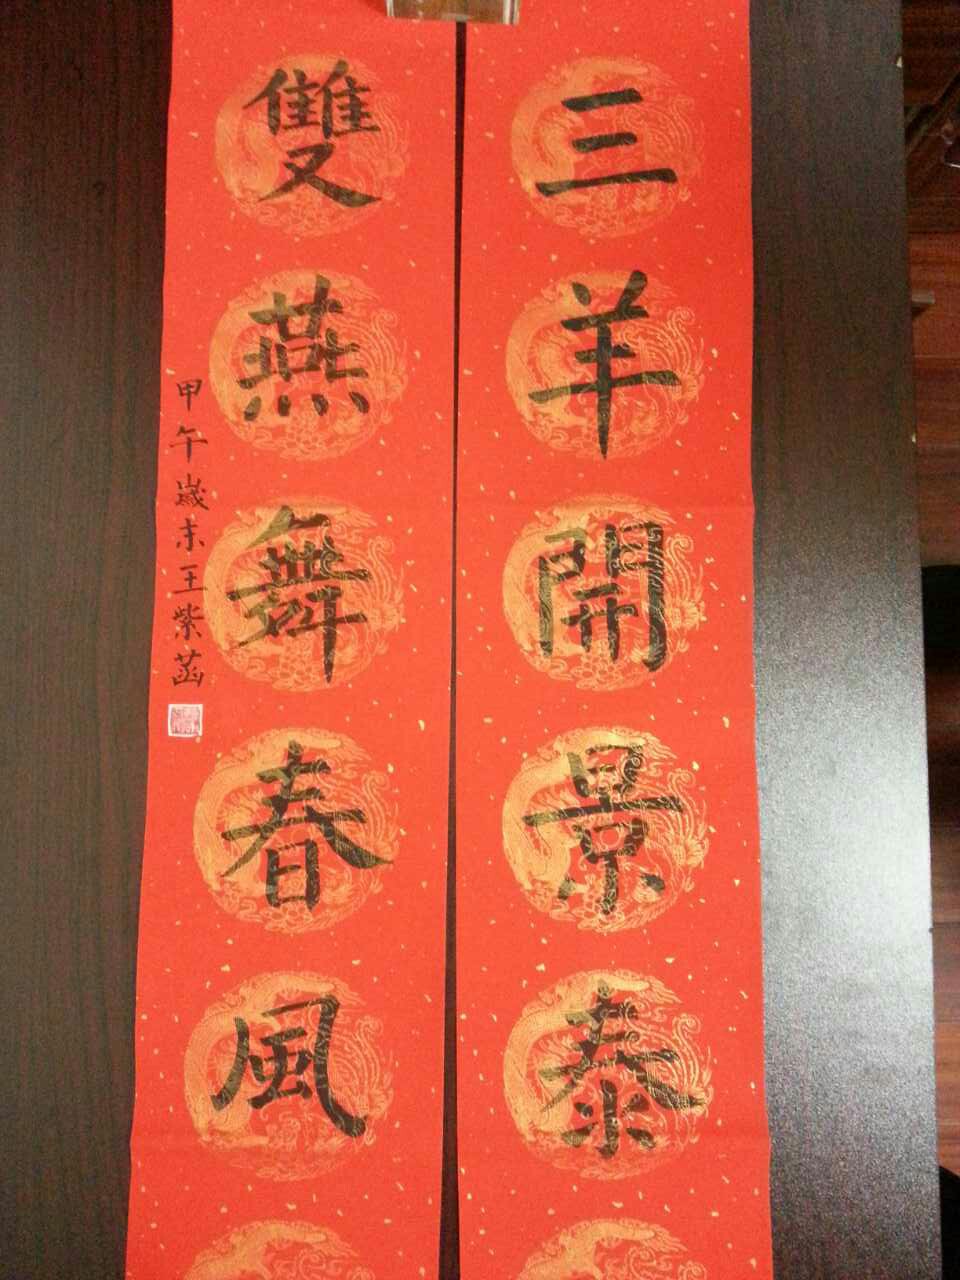 三羊開景泰
雙燕舞春風
甲午歲末王紫菡